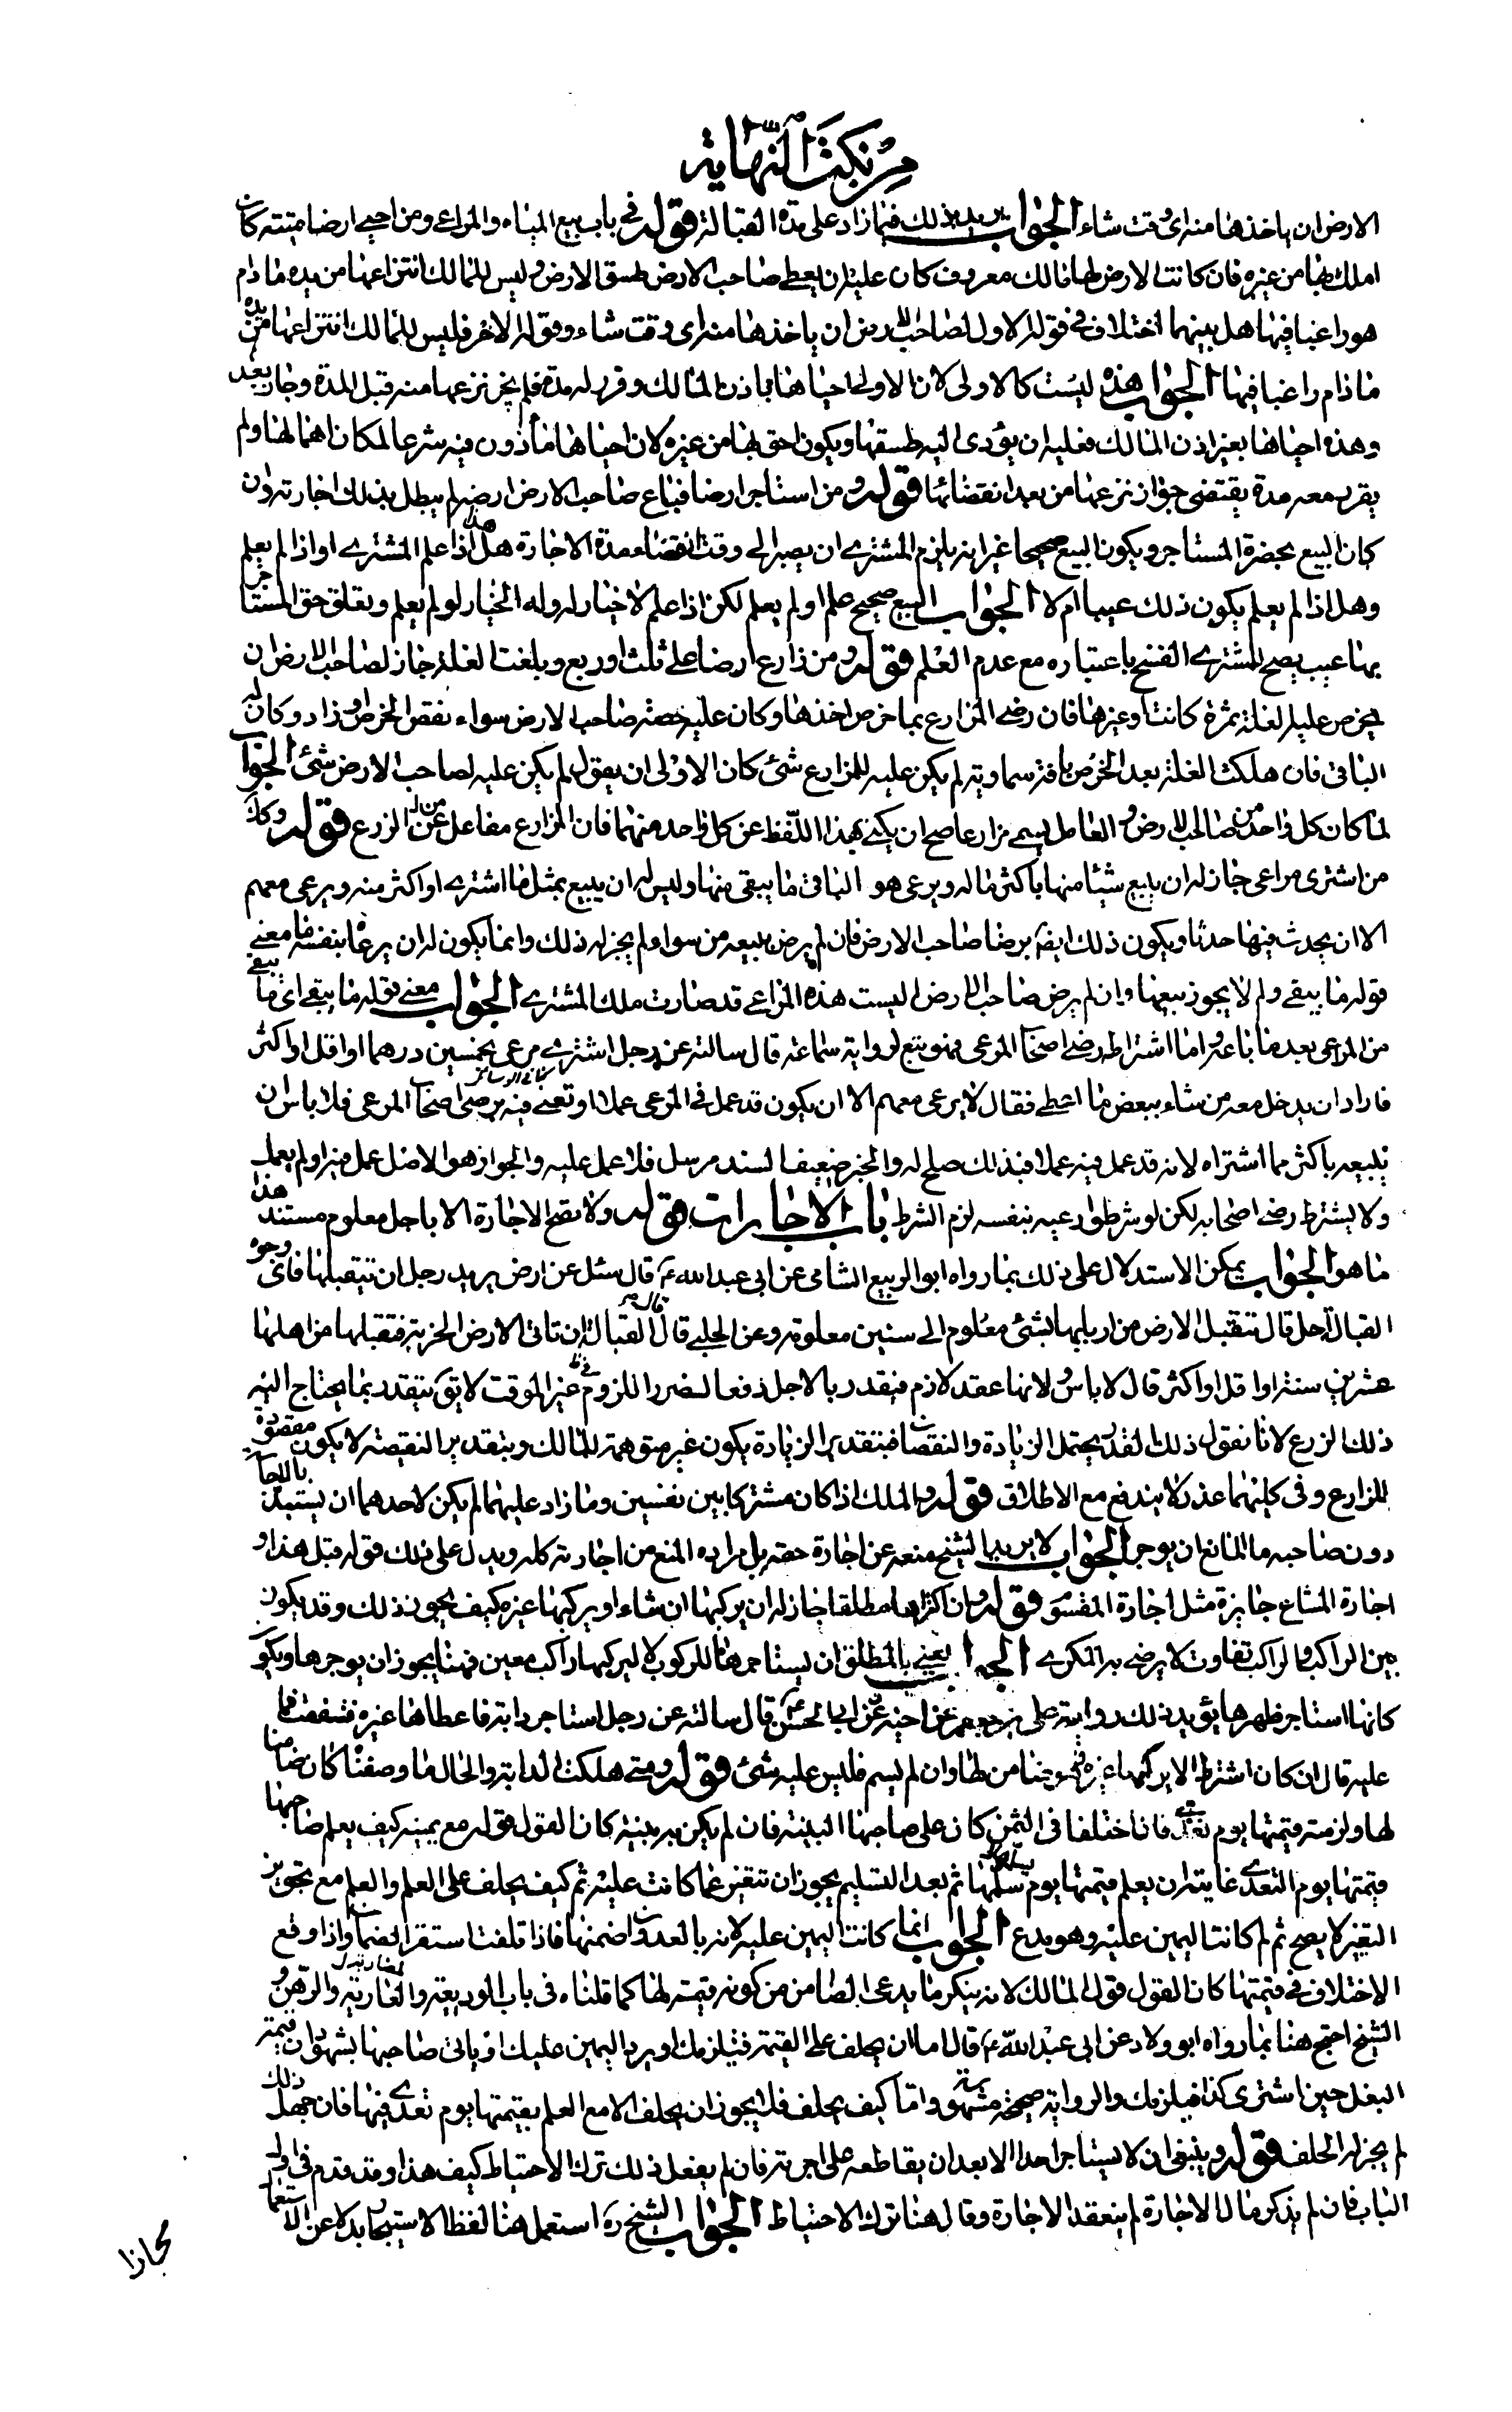 من نكت النهاية
الارض ان ياخذها منه اى وقت شاء الجواب يريد بذلك فيما زاد على مدة القبالة قوله فى باب بيع المياه والمراعى ومن احيى ارضا ميتة كان
املك بها من غيره فان كانت الارض لها مالك معروف كان عليه ان يعطى صاحب الارض طسق الارض وليس للمالك انتزاعها من يده ما دام
هو راغبا فيها هل بينهما اختلاف فى قوله الاول لصاحب الارض ان ياخذها منه اى وقت شاء وقوله الاخر فليس للمالك انتزاعها من يده
ما دام راغبا فيها الجواب هذه ليست كالاولى لان الاولى احياها باذن المالك وقرر له مدة فلم يجز نزعها منه قبل المدة وجاز بعد
وهذه احياها بغير اذن المالك فعليه ان يؤدى اليه طسقها ويكون احق بها من غيره لان احياها مأذون فيه شرعا لمكان اهمالها ولم
يقرر معه مدة يقتضى جواز نزعها من بعد انقضائها قوله ومن استاجر ارضا فباع صاحب الارض ارضه لم يبطل بذلك اجارته وان
كان البيع بحضرة المستاجر ويكون البيع صحيحا غير انه يلزم المشترى ان يصبر الى وقت انقضاء مدة الاجارة هل هذا اذا علم المشترى او اذا لم يعلم
وهل اذا لم يعلم يكون ذلك عيبا ام لا الجواب البيع صحيح علم او لم يعلم لكن اذا علم لا خيار له وله الخيار لو لم يعلم وتعلق حق المستاجر
بها عيب يصح للمشترى الفسخ باعتباره مع عدم العلم قوله ومن زارع ارضا على ثلث او ربع وبلغت الغلة جاز لصاحب الارض ان
يخرص عليه الغلة ثمرة كانت او غيرها فان رضى المزارع بما خرص اخذها وكان عليه حصة صاحب الارض سواء نقص الخرص او زاد وكان له
الباقى فان هلكت الغلة بعد الخرص بافة سماوية لم يكن عليه للمزارع شئ كان الاولى ان يقول لم يكن عليه لصاحب الارض شئ الجواب
لما كان كل واحد من صاحب الارض والعامل يسمى مزارعا صح ان يكنى بهذا اللفظ عن كل واحد منهما فان المزارع مفاعل من الزرع قوله وكل
من اشترى مراعى جاز له ان يبيع شيئا منها باكثر ماله ويرعى هو الباقى ما يبقى منها وليس له ان يبيع بمثل ما اشترى او اكثر منه ويرعى معهم
الا ان يحدث فيها حدثا ويكون ذلك ايضا برضا صاحب الارض فان لم يرض ببيعه من سواه لم يجز له ذلك وانما يكون له ان يرعاه بنفسه ما معنى
قوله ما يبقى ولم لا يجوز بيعها وان لم يرض صاحب الارض اليست هذه المراعى قد صارت ملك المشترى الجواب معنى قوله ما يبقى اى ما يبقى
من المرعى بعد ما باعه واما اشتراط رضى اصحاب المرعى فهو يتبع لرواية سماعة قال سالته عن رجل اشترى مرعى بخمسين درهما او اقل او اكثر
فاراد ان يدخل معه من شاء ببعض ما اعطى فقال لا يرعى معهم الا ان يكون قد عمل فى المرعى عملا او تعنى فيه برضى اصحاب المرعى فلا باس ان
يبيعه باكثر مما اشتراه لانه قد عمل فيه عملا فبذلك صلح له والخبر ضعيف السند مرسل فلا عمل عليه والجواز هو الاصل عمل فيه او لم يعمل
ولا يشترط رضى اصحابه لكن لو شرطوا رعيه بنفسه لزم الشرط باب الاجارات قوله ولا تصح الاجارة الا باجل معلوم مستند هذا
ما هو الجواب يمكن الاستدلال على ذلك بما رواه ابو الربيع الشامى عن ابى عبد الله ع قال سئل عن ارض يريد رجل ان يتقبلها فاى وجوه
القبالة احل قال تتقبل الارض من اربابها بشئ معلوم الى سنين معلومة وعن الحلبى قال القبالة ان تاتى الارض الخربة فتقبلها من اهلها
عشرين سنة او اقل او اكثر قال لا باس ولانها عقد لازم فيقدر بالاجل دفعا لضرر اللزوم فى غير الموقت لا يق يتقدر بما يحتاج اليه
ذلك الزرع لانا نقول ذلك القدر يحتمل الزيادة والنقصان فبتقدير الزيادة يكون غير متوهمة للمالك وبتقدير النقيصة لا يكون مقصودة
للزارع وفى كليهما غرر لا يندفع مع الاطلاق قوله والملك اذا كان مشتركا بين نفسين وما زاد عليهما لم يكن لاحدهما ان يستبد بالاجارة
دون صاحبه ما المانع ان يوجر الجواب لا يريد الشيخ منعه عن اجارة حقه بل مراده المنع من اجارته كله ويدل على ذلك قوله قبل هذا و
اجارة المشاع جايزة مثل اجارة المقسوم قوله وان اكتراها مطلقا جاز له ان يركبها ان شاء او يركبها غيره كيف يجوز ذلك وقد يكون
بين الراكب والراكب تفاوت لا يرضى به المكرى الجواب يعنى بالمطلق ان يستاجرها للركوب لا ليركبها راكب معين فهنا يجوز ان يوجرها ويكون
كانها استاجر ظهرها يؤيد ذلك رواية على بن جعفر عن اخيه عن ابى الحسن ع قال سالته عن رجل استاجر دابة فاعطاها غيره فنفقت فما
عليه قال ان كان اشترط الا يركبها غيره فهو ضامن لها وان لم يسم فليس عليه شئ قوله ومتى هلكت الدابة والحال ما وصفناه كان ضامنا
لها ولزمه قيمتها يوم تعدى فان اختلفا فى الثمن كان على صاحبها البينة فان لم يكن بينة كان القول قوله مع يمينه كيف يعلم صاحبها
قيمتها يوم التعدى غايته ان يعلم قيمتها يوم سلمها ثم بعد التسليم يجوز ان تتغير عما كانت عليه ثم كيف يحلف على العلم والعلم مع تجويز
التغير لا يصح ثم لم كانت اليمين عليه وهو مدع الجواب انما كانت اليمين عليه لانه بالعدوان ضمنها فاذا تلفت استقر الضمان واذا وقع
الاختلاف فى قيمتها كان القول قول المالك لانه ينكر ما يدعى الضامن من كونه قيمة لها كما قلناه فى باب الوديعة والعارية والرهن و
الشيخ احتج هنا بما رواه ابو ولاد عن ابى عبد الله ع قال اما ان يحلف على القيمة فيلزمك او يرد اليمين عليك او ياتى صاحبها بشهود ان قيمة
البغل حين اشترى كذا فيلزمك والرواية صحيحة مشهورة واما كيف يحلف فلا يجوز ان يحلف الا مع العلم بقيمتها يوم تعدى فيها فان جهل ذلك
لم يجز له الحلف قوله وينبغى ان لا يستاجر احدا الا بعد ان يقاطعه على اجرته فان لم يفعل ذلك ترك الاحتياط كيف هذا وقد قدم فى اول
الباب فان لم يذكر مال الاجارة لم ينعقد الاجارة وقال هنا ترك الاحتياط الجواب الشيخ ره استعمل هنا لفظ الاستيجار بدلا عن الاستعمال
مجازا